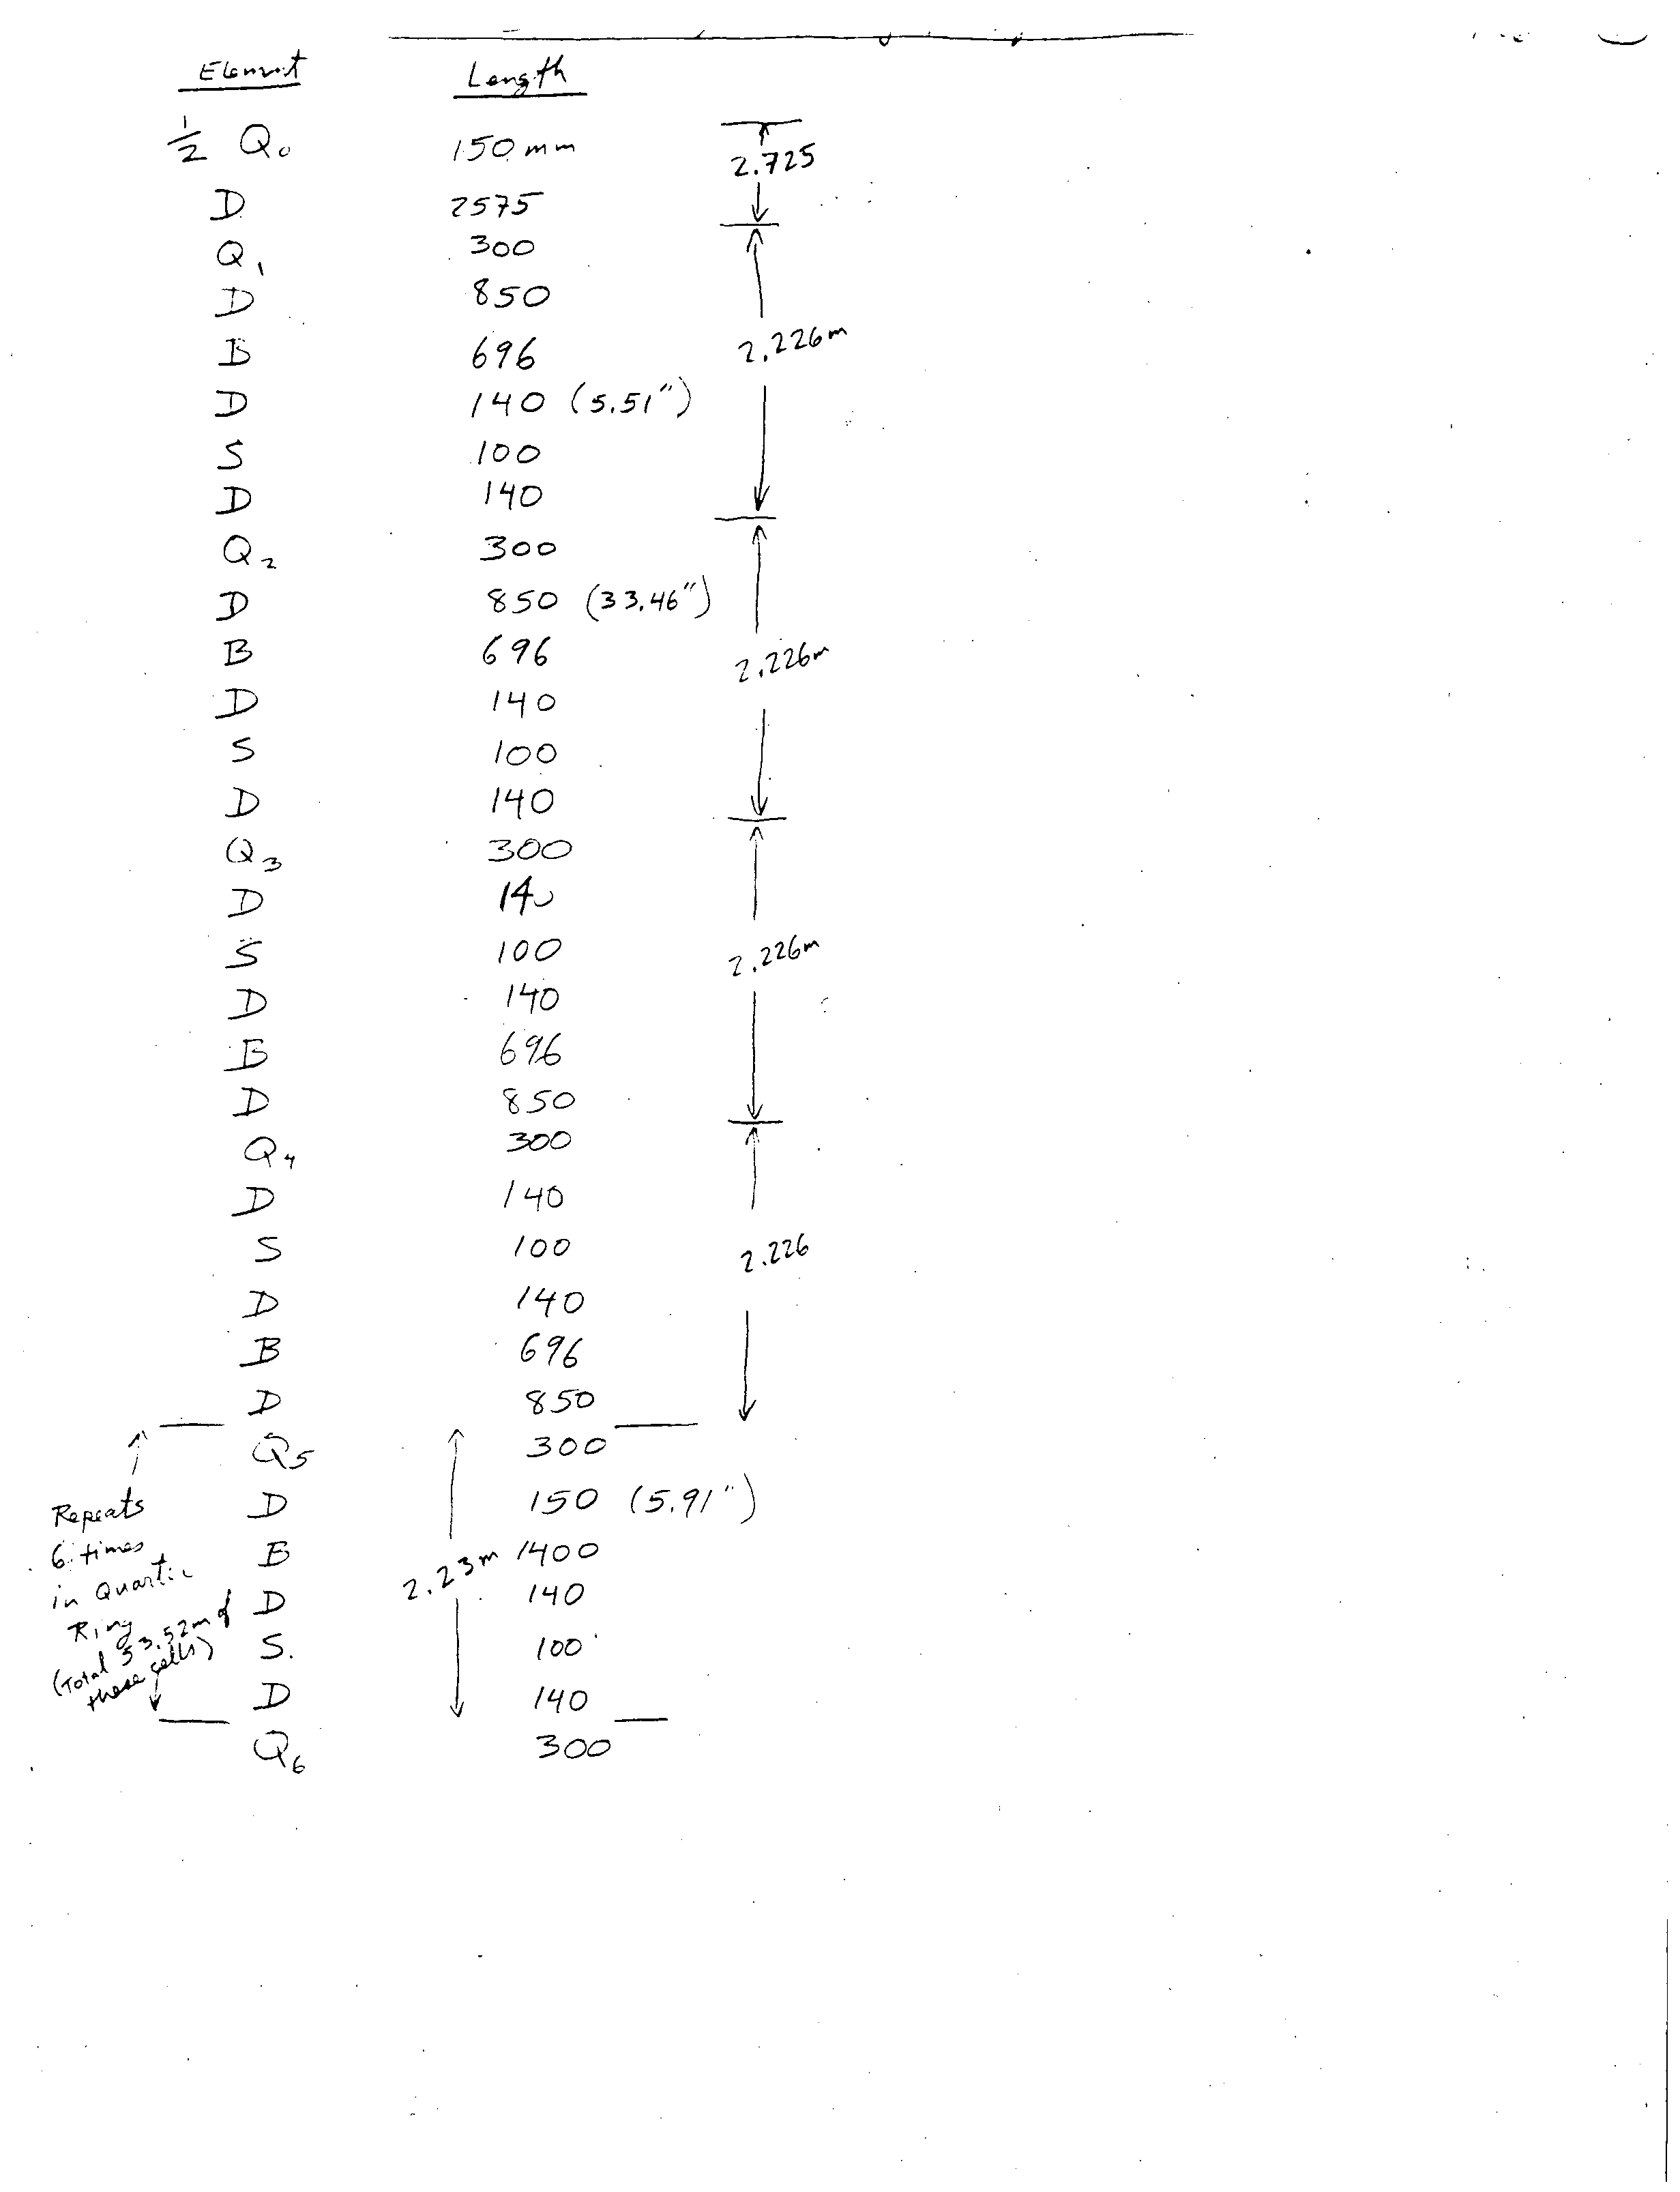 Element Length
½ Q₀ 150 mm 2.725
D 2575
Q₁ 300
D 850
B 696 2.226m
D 140 (5.51")
S 100
D 140
Q₂ 300
D 850 (33.46")
B 696 2.226m
D 140
S 100
D 140
Q₃ 300
D 140
S 100 2.226m
D 140
B 696
D 850
Q₄ 300
D 140
S 100 2.226
D 140
B 696
D 850
Q₅ 300
D 150 (5.91")
B 1400
D 140
S. 100
D 140
Q₆ 300
2.23m
Repeats
6 times
in Quartic
Ring
(Total 53.52m of
these cells)